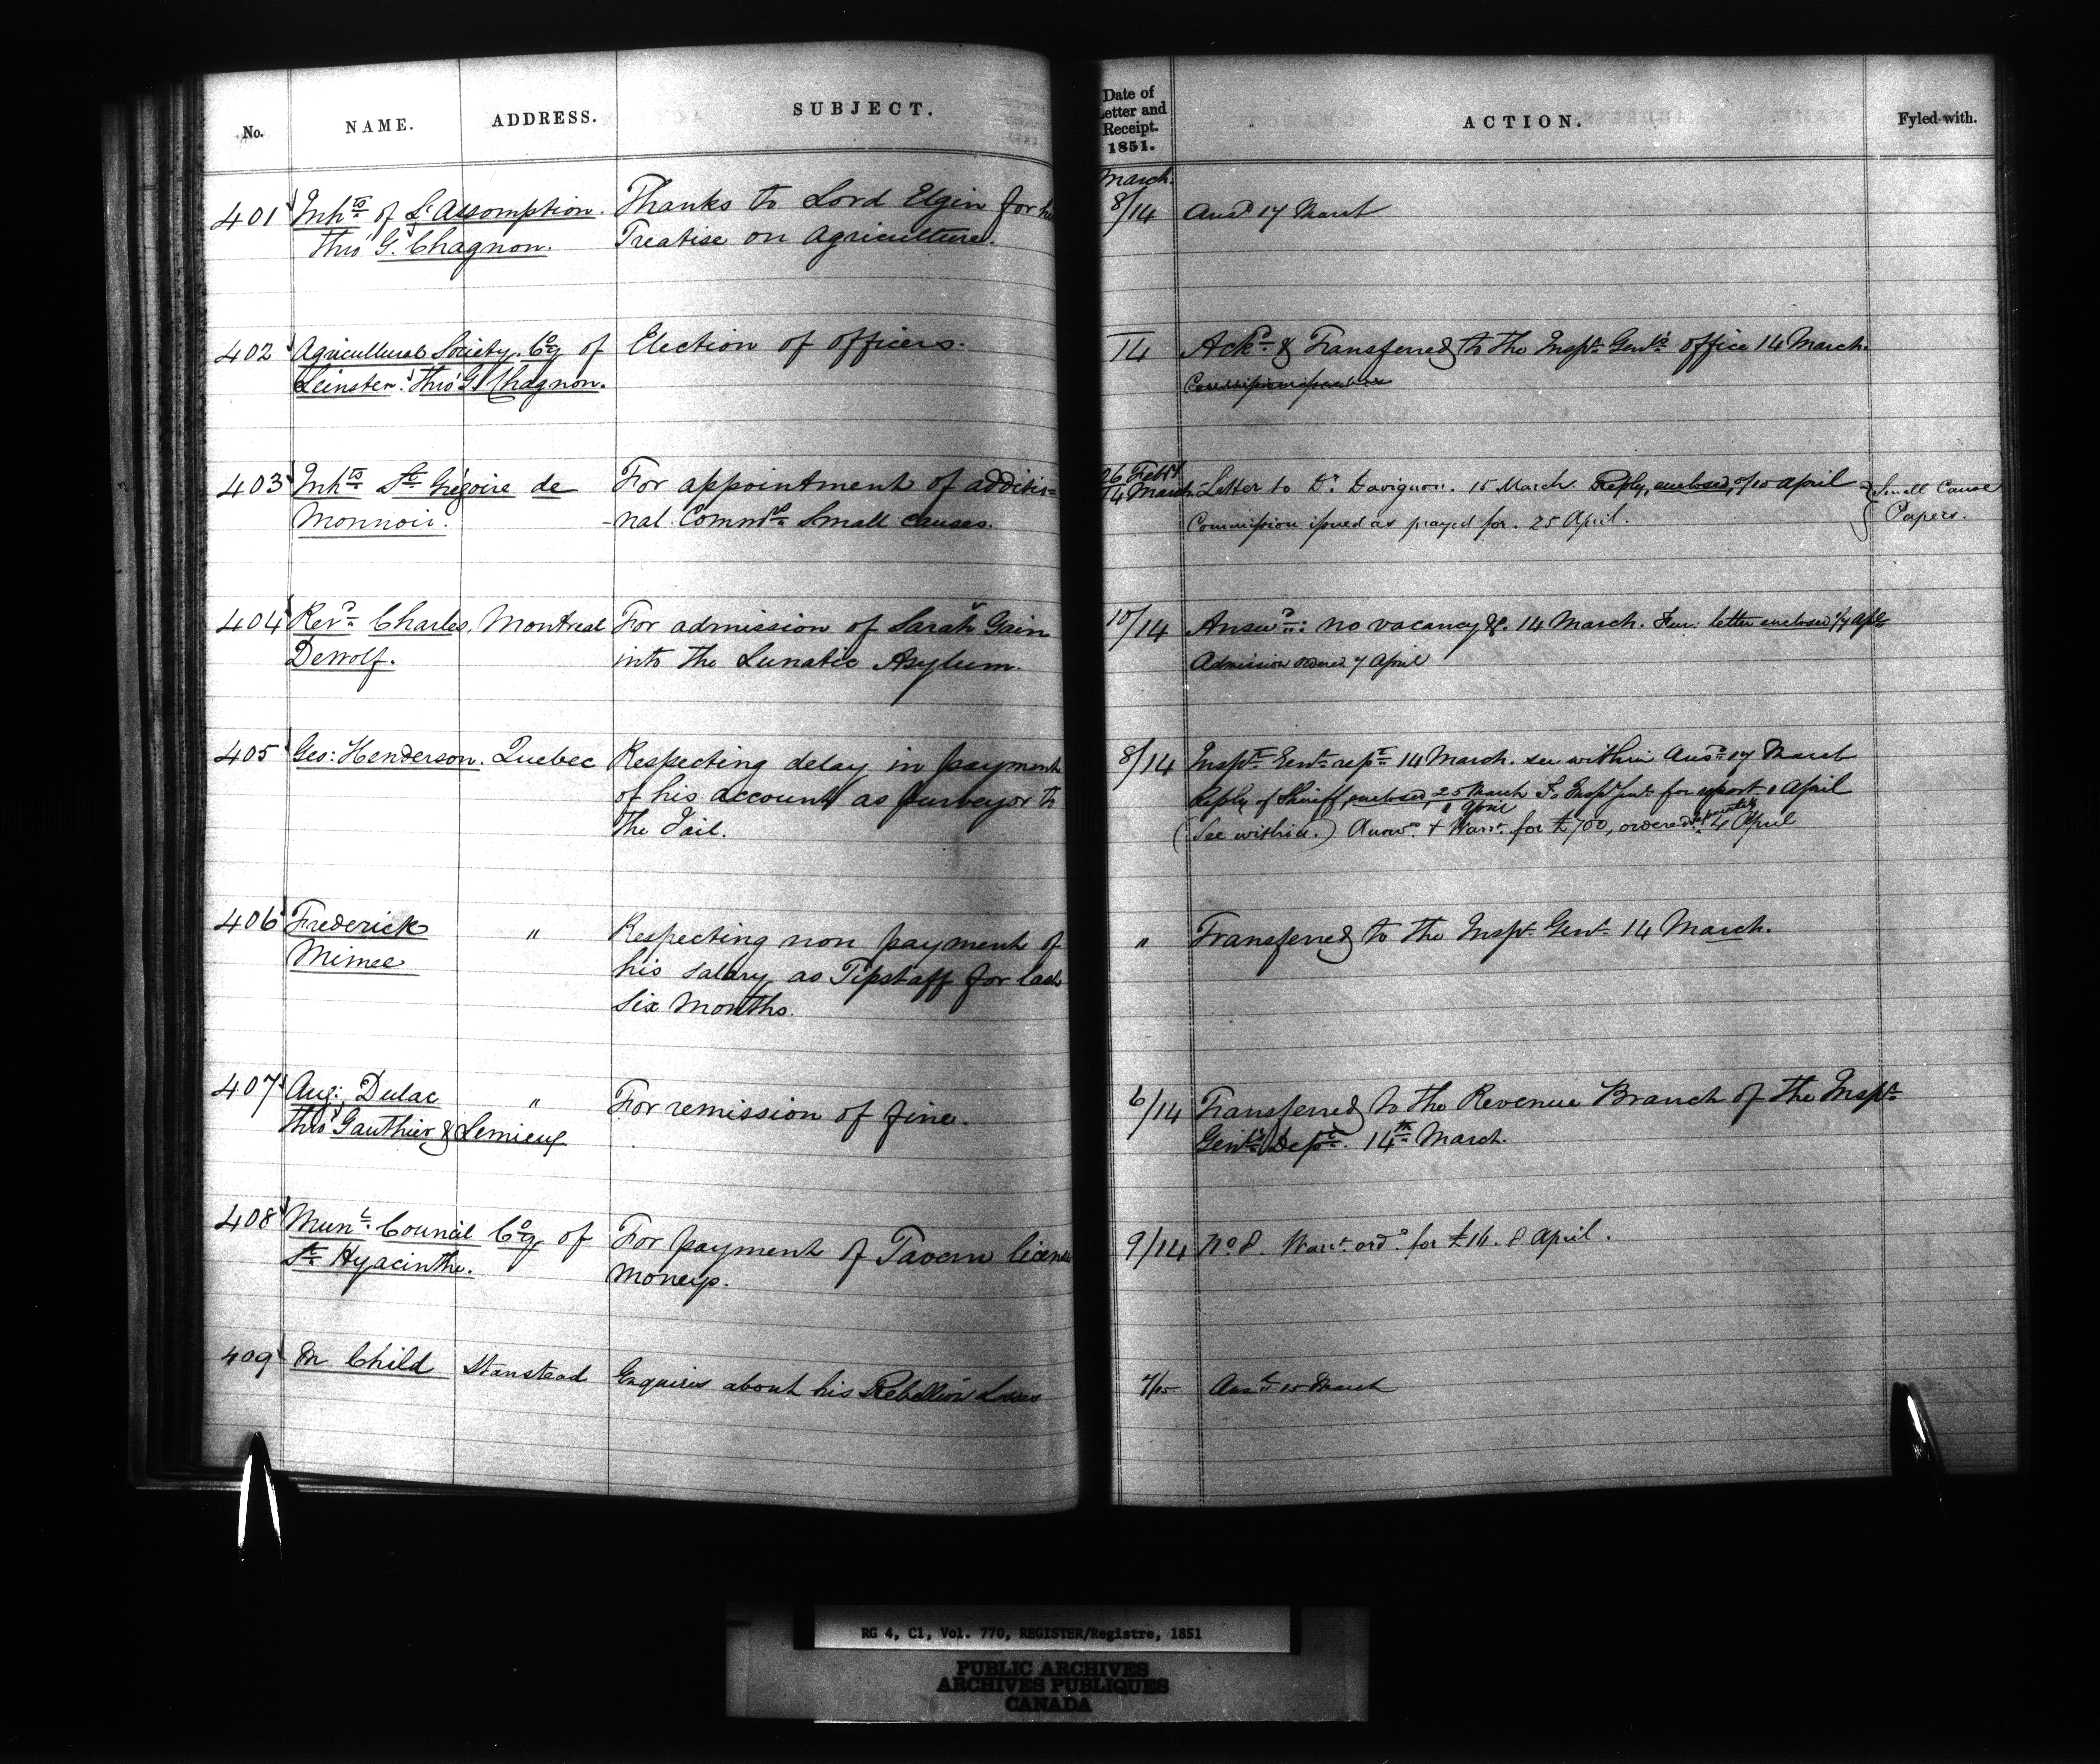 No. NAME. ADDRESS. SUBJECT. Date of Letter and Receipt. 1851. ACTION. Fyled with.
March
401 Inh.ts of L'Assomption. Thanks to Lord Elgin for his 8/14 Ansd 17 March
thro' G. Chagnon. Treatise on Agriculture.
402 Agricultural Society Coy of Election of Officers. 14 Ackd & Transferred to the Inspr Genl's office 14 March.
Leinster: thro' G. Chagnon.
403 Inhts St Grégoire de For appointment of additio= 26 Feby 14 March Letter to Dr Davignon. 15 March. Reply, enclosed, of 10 April Small Cause
Monnoir. -nal Commrs Small causes. Commission issued as prayed for. 25 April. Papers.
404 Revd Charles Montreal For admission of Sarah Gain 10/14 Answd: no vacancy &c. 14 March. Fur: letter enclosed
Dewolf. into the Lunatic Asylum. Admission ordered 7 April
405 Geo: Henderson. Quebec Respecting delay in payment 8/14 Inspr Genl rept 14 March. see within Ansd 17 March
of his account as purveyor to Reply of Sheriff, enclosed, 25 March To Inspr Genl for report 1 April
the Jail. (See within.) Answd 1 April & Warrt for £700, ordered 4 April
406 Frederick " Respecting non payment of " Transferred to the Inspr Genl 14 March.
Mimee his salary as Tipstaff for last
Six Months.
407 Aug: Dulac " For remission of fine. 6/14 Transferred to the Revenue Branch of the Inspr
thro' Gauthier & Lemieux Genl's Dept. 14th March.
408 Munl Council Coy of For payment of Tavern license 9/14 No 8. Warrt ordd for £16. 8 April.
St Hyacinthe. Moneys.
409 M Child Stanstead Enquires about his Rebellion Losses 7/15 Ansd 15 March
RG 4, C1, Vol. 770, REGISTER/Registre, 1851
PUBLIC ARCHIVES
ARCHIVES PUBLIQUES
CANADA